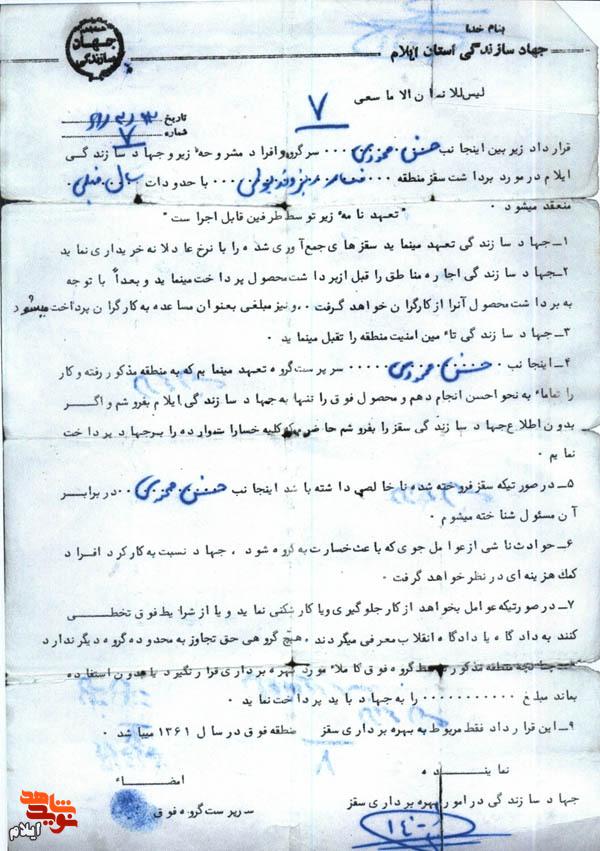 بنام خدا
جهاد سازندگی استان ایلام
جهاد سازندگی
لیس للانسان الا ما سعی
تاریخ
شماره ۷
۷
قرارداد زیر بین اینجانب حسن سرگروه و افراد مشروحه زیر و جهاد سازندگی
ایلام در مورد برداشت سقز منطقه ۰۰۰ با حدودات
منعقد میشود ۰
"تعهد نامه زیر توسط طرفین قابل اجراست"
۱ــ جهاد سازندگی تعهد مینماید سقزهای جمع آوری شده را با نرخ عادلانه خریداری نماید
۲ــ جهاد سازندگی اجاره مناطق را قبل از برداشت محصول پرداخت مینماید و بعداً با توجه
به برداشت محصول آنرا از کارگران خواهد گرفت ۰۰ و نیز مبلغی بعنوان مساعده به کارگران پرداخت میشود
۳ــ جهاد سازندگی تاٴمین امنیت منطقه را تقبل مینماید ۰
۴ــ اینجانب ۰ حسن ۰۰۰۰۰ سرپرست گروه تعهد مینمایم که به منطقه مذکور رفته و کار
را تماماً به نحو احسن انجام دهم و محصول فوق را تنها به جهاد سازندگی ایلام بفروشم و اگر
بدون اطلاع جهاد سازندگی سقز را بفروشم حاضرم که کلیه خسارات وارده را بر جهاد پرداخت
نمایم ۰
۵ــ در صورتیکه سقز فروخته شده ناخالصی داشته باشد اینجانب حسن ۰۰ در برابر
آن مسئول شناخته میشوم ۰
۶ــ حوادث ناشی از عوامل جوی که باعث خسارت به گروه شود ، جهاد نسبت به کارکرد افراد
کمک هزینه ای در نظر خواهد گرفت ۰
۷ــ در صورتیکه عوامل بخواهد از کار جلوگیری و یا کارشکنی نماید و یا از شرایط فوق تخطی
کنند به دادگاه یا دادگاه انقلاب معرفی میگردند ۰ هیچ گروهی حق تجاوز به محدوده گروه دیگر ندارد
۸ــ چنانچه منطقه مذکور توسط گروه فوق کاملاً مورد بهره برداری قرار نگیرد یا بدون استفاده
بماند مبلغ ۰۰۰۰۰۰۰۰۰۰۰ را به جهاد باید پرداخت نماید ۰
۹ــ این قرارداد فقط مربوط به بهره برداری سقز منطقه فوق در سال ۱۳۶۱ میباشد ۰
۸
نماینده
امضاء
جهاد سازندگی در امور بهره برداری سقز
سرپرست گروه فوق
نوید شاهد
ایلام